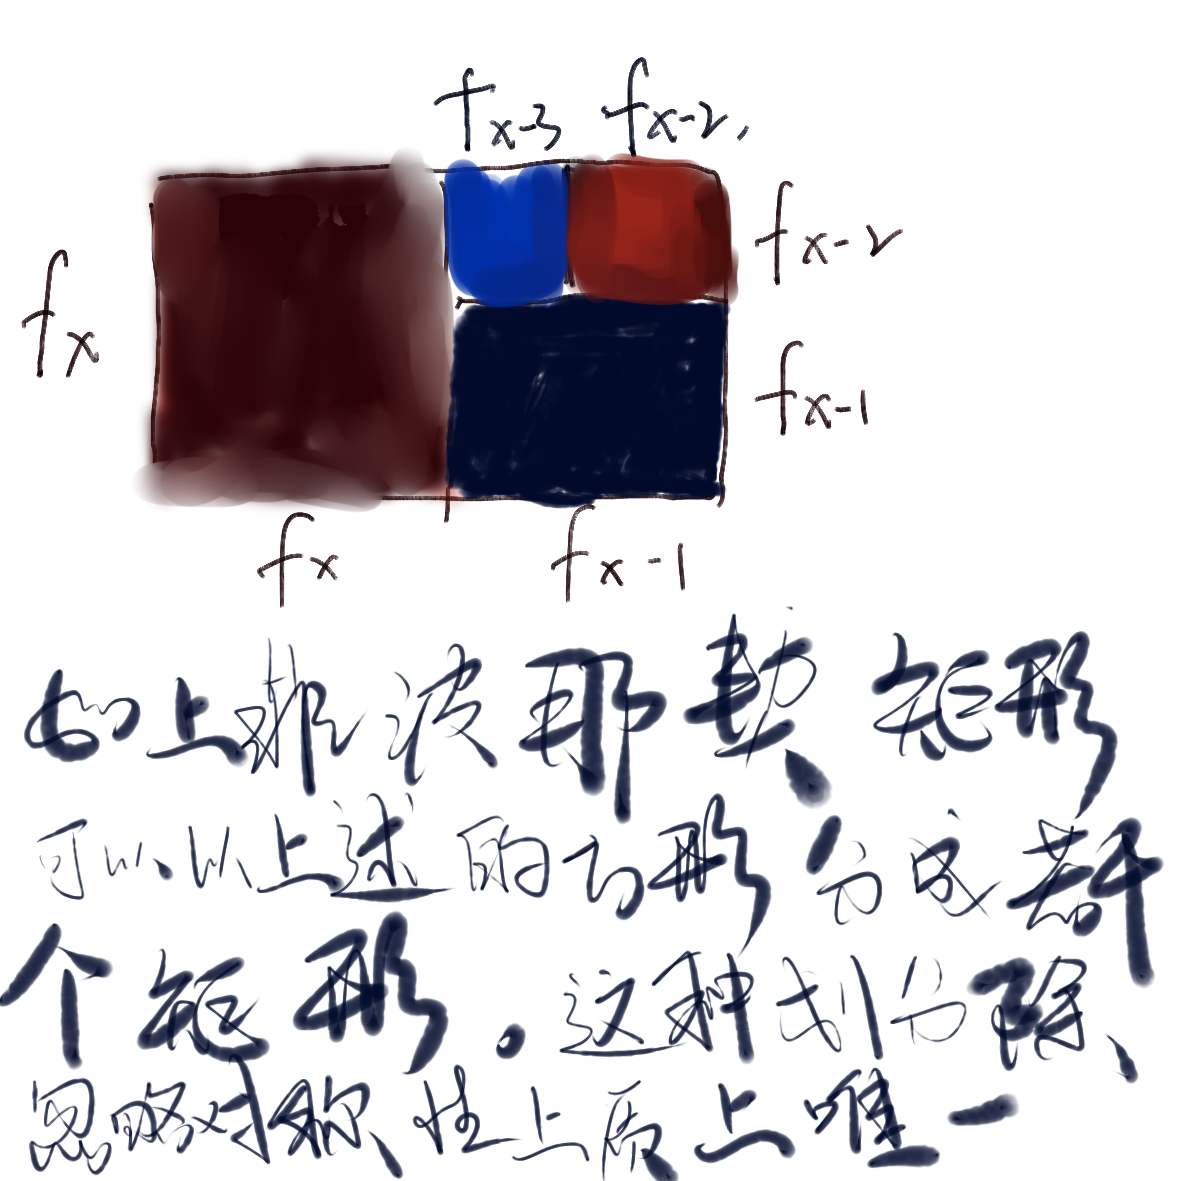 fx-3 fx-2,
fx-2
fx
fx-1
fx fx-1
如上菲波那契矩形
可以以上述的方形分成若干
个矩形。这种划分除、
忽略对称性上质上唯一